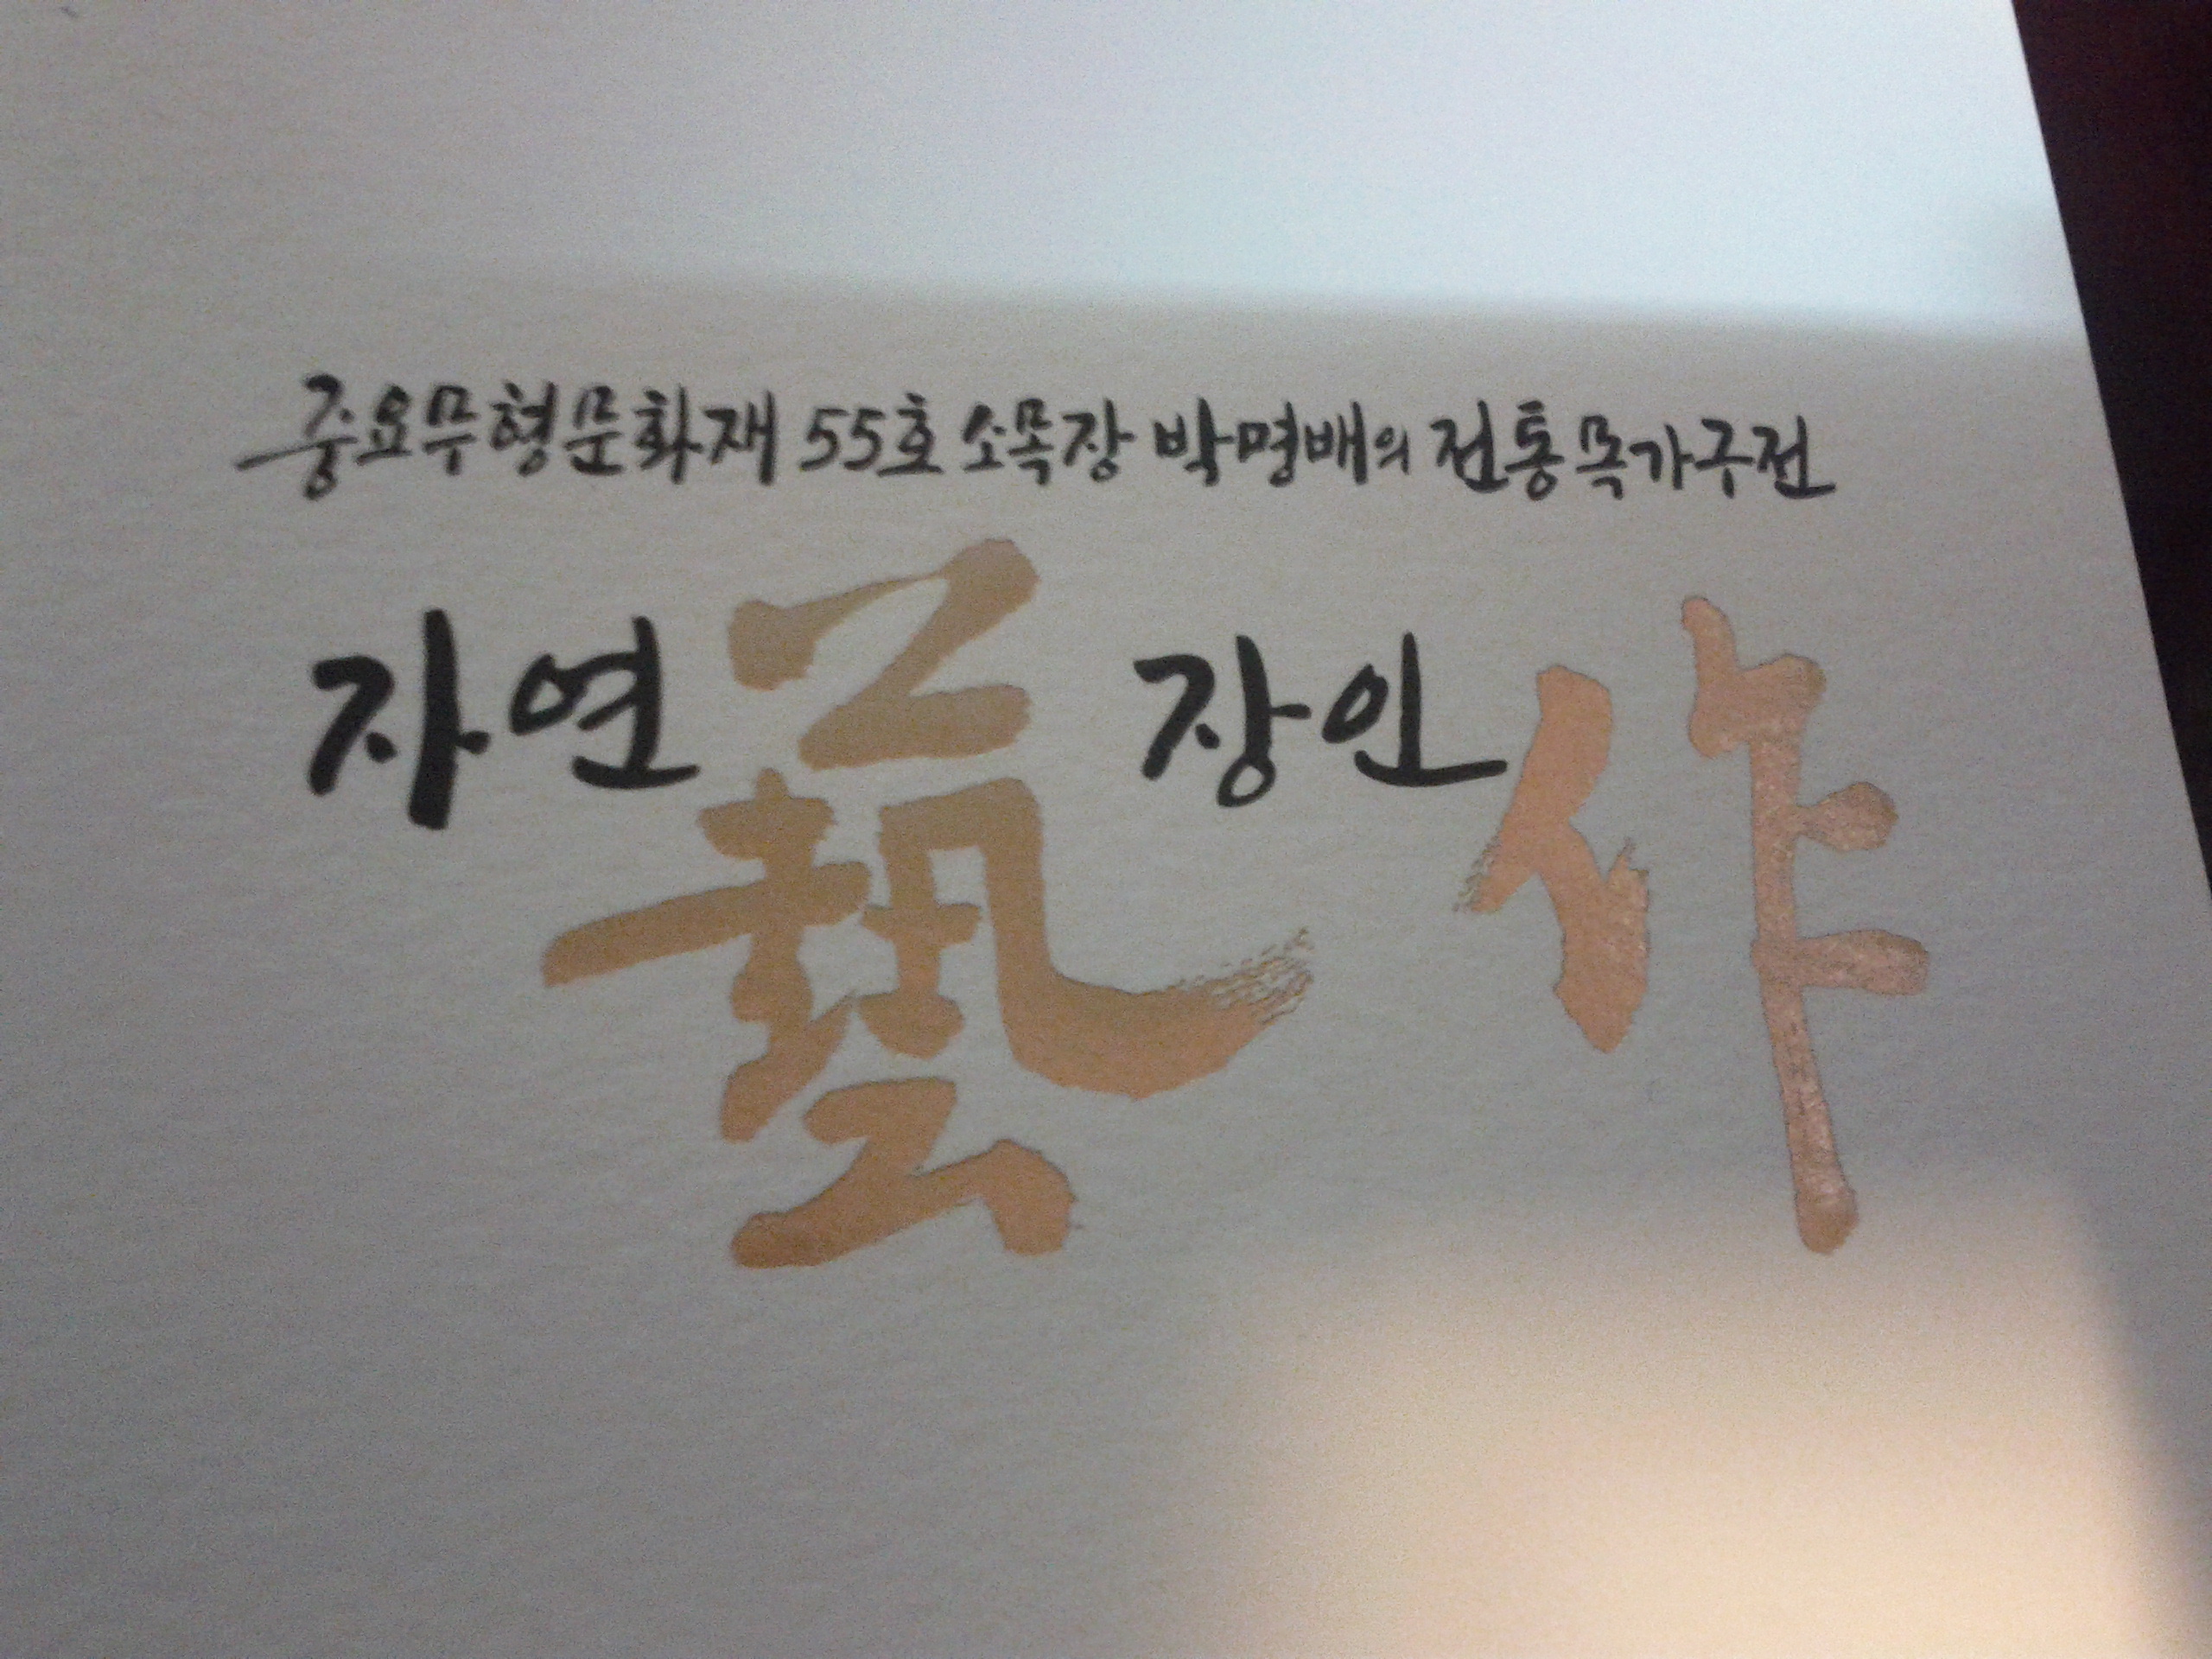 중요무형문화재 55호 소목장 박명배의 전통목가구전
자연藝 장인作